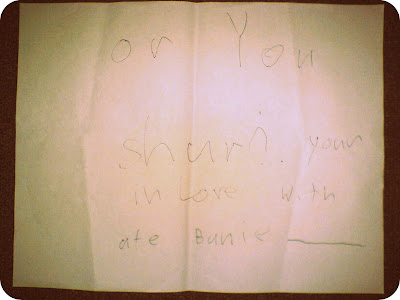 or You
shuri. your
in love with
ate Banie